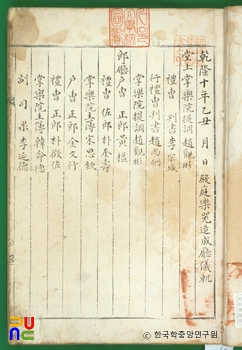 乾隆十年乙丑 月 日 殿庭樂器造成廳儀軌
堂上掌樂院提調趙觀彬
禮曹 判書李宗城
行禮曹判書趙尚絅
掌樂院提調趙觀彬
郎廳戶曹 正郎黃榅
禮曹 佐郎朴奎壽
掌樂院主簿宋思欽
戶曹 正郎金文行
禮曹 正郎朴徵佐
掌樂院主簿韓命德
副司果李延德
ⓒ한국학중앙연구원